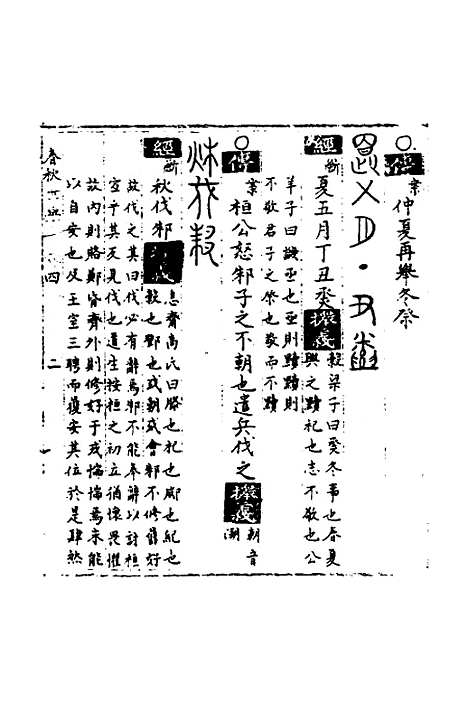 ○傳案仲夏再舉冬祭
夏五月丁丑烝
經斷夏五月丁丑烝 穀梁子曰烝冬事也春夏
興之黷祀也志不敬也公
羊子曰譏亟也亟則黷黷則
不敬君子之祭也敬而不黷
○傳案桓公怒邾子之不朝也遣兵伐之 朝音
潮
秋伐邾
經斷秋伐邾 息齋高氏曰滕也杞也郕也紀也
穀也鄧也或朝或會邾不修舊好
故伐之其曰伐必有辭焉邾不能奉辭以討桓
宜乎其反見伐也道生按桓之初立猶懷畏懼
故內則賂鄭昏齊外則修好于戎惴惴焉未能
以自安也及王室三聘而復安其位於是肆然
春秋 四 二